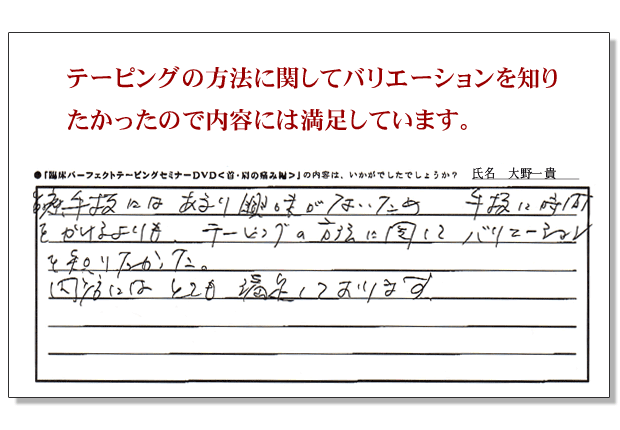 テーピングの方法に関してバリエーションを知り
たかったので内容には満足しています。
●「臨床パーフェクトテーピングセミナーDVD<首・肩の痛み編>」の内容は、いかがでしたでしょうか？ 氏名 大野一貴
手技にはあまり興味がないため 手技に時間
をかけるよりも、テーピングの方法に関して バリエーション
を知りたかった。
内容にはとても満足しております